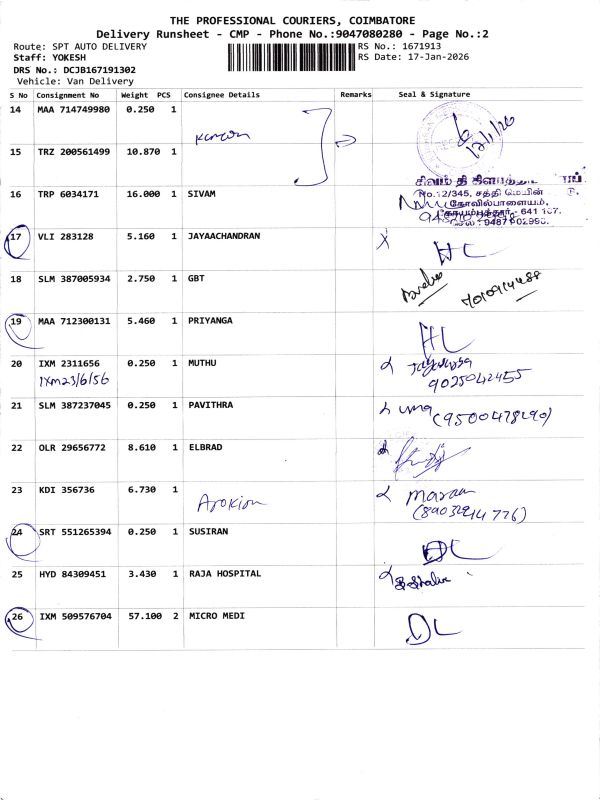 THE PROFESSIONAL COURIERS, COIMBATORE
Delivery Runsheet - CMP - Phone No.:9047080280 - Page No.:2
Route: SPT AUTO DELIVERY RS No.: 1671913
Staff: YOKESH RS Date: 17-Jan-2026
DRS No.: DCJB167191302
Vehicle: Van Delivery
S No Consignment No Weight PCS Consignee Details Remarks Seal & Signature
14 MAA 714749980 0.250 1
15 TRZ 200561499 10.870 1
16 TRP 6034171 16.000 1 SIVAM
No.12/345, சத்தி மெயின்
கோவில்பாளையம்,
17 VLI 283128 5.160 1 JAYAACHANDRAN
18 SLM 387005934 2.750 1 GBT
19 MAA 712300131 5.460 1 PRIYANGA
20 IXM 2311656 0.250 1 MUTHU
9025042455
21 SLM 387237045 0.250 1 PAVITHRA uma
22 OLR 29656772 8.610 1 ELBRAD
23 KDI 356736 6.730 1 Arokion
24 SRT 551265394 0.250 1 SUSIRAN
25 HYD 84309451 3.430 1 RAJA HOSPITAL
26 IXM 509576704 57.100 2 MICRO MEDI DL